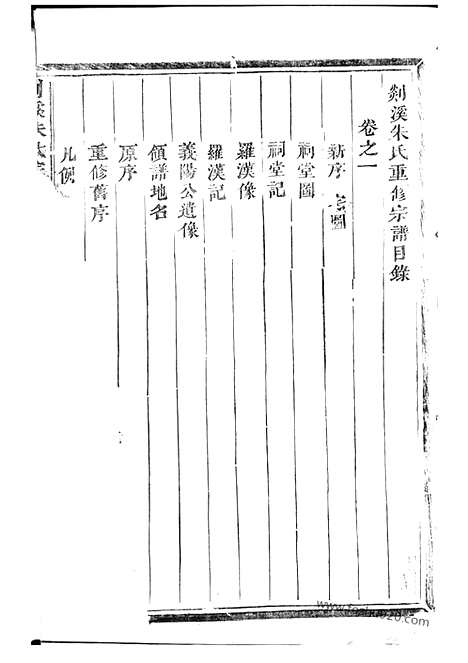 剡溪朱氏重修宗譜目錄
卷之一
新序
祠堂圖
祠堂記
羅漢像
羅漢記
義陽公遺像
領譜地名
原序
重修舊序
凡例